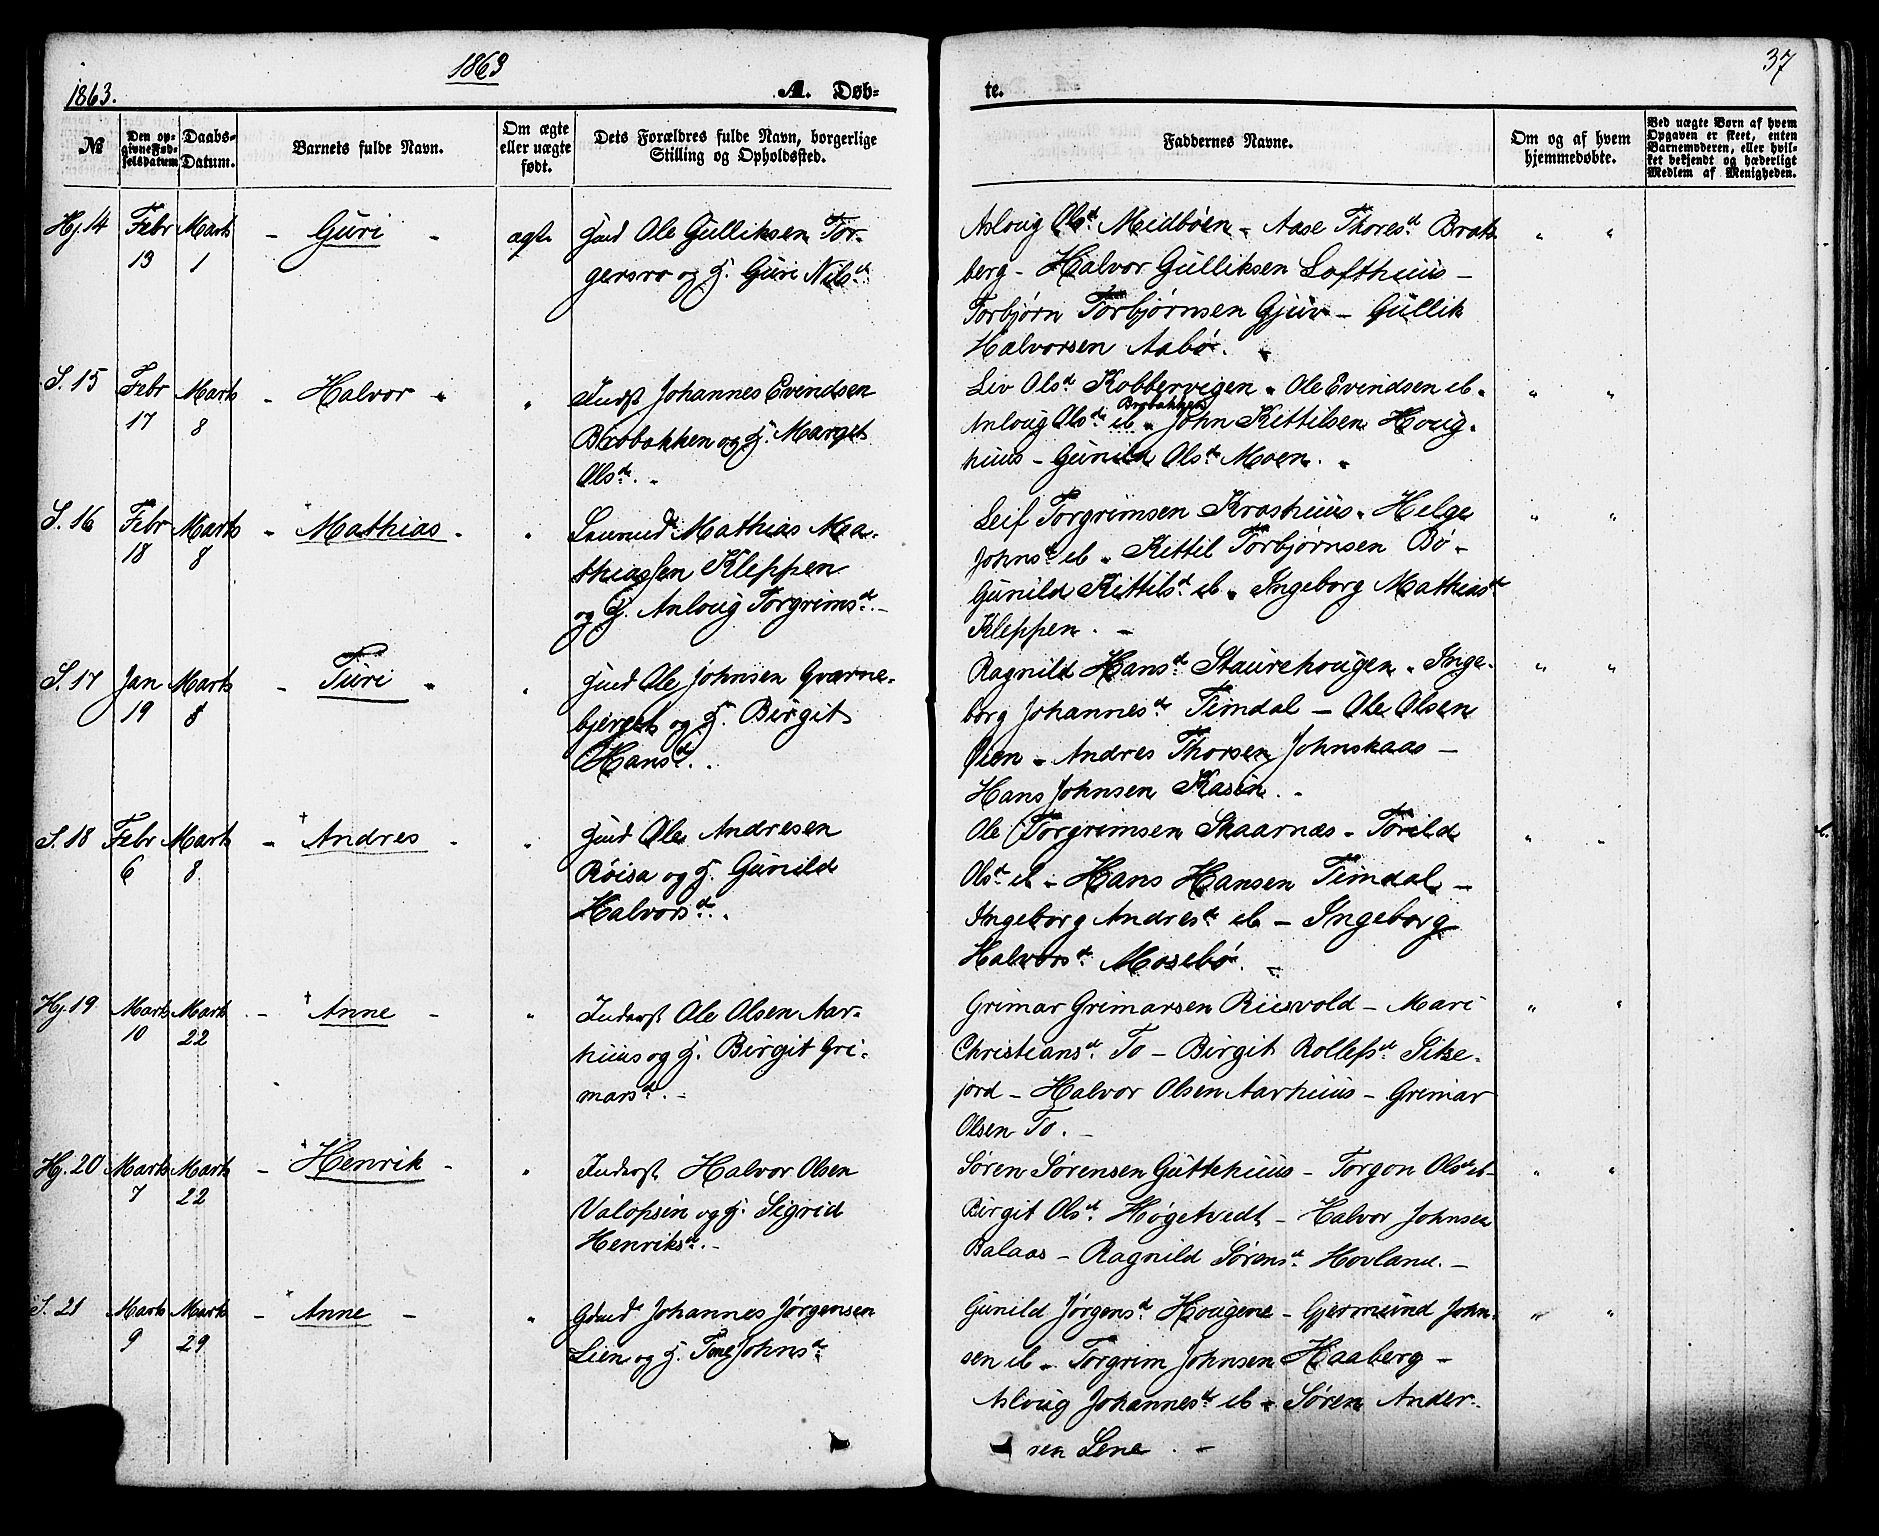 1863
37
1863.
A. Døb-
te.
№
Den op-
givne Fød-
selsdatum
Daabs-
Datum.
Barnets fulde Navn.
Om ægte
eller uægte
født.
Dets Forældres fulde Navn, borgerlige
Stilling og Opholdssted.
Faddernes Navne.
Om og af hvem
hjemmedøbte.
Ved uægte Børn af hvem
Opgaven er skeet, enten
Barnemoderen, eller hvil-
ket bekjendt og hæderligt
Medlem af Menigheden.
Hj. 14 Febr 13 Marts 1 - Guri - ægte
Ole Gulliksen Tor-
gersro og H. Guri Nilsd.
Asloug Olsd. Midbøen - Aase Thoresd. Brats
berg - Halvor Gulliksen Lofthuus -
Torbjørn Torbjørnsen Gjuv - Gullik
Halvorsen Aabø. "
S. 15 Febr 17 Marts 8 - Halvor " "
Inds Johannes Evindsen
Brobakken og H. Marget
Olsd. -
Liv Olsd Kobbervigen - Ole Evindsen ib -
Anloug Olsd ib Brobakken - John Kittilsen Houg-
huus - Gunild Olsd. Moen. "
S. 16 Febr 18 Marts 8 - Mathias - "
Mathias Ma-
thiassen Kleppen
og H. Anloug Torgrimsd. -
Leif Torgrimsen Krashuus - Helge
Johnsd ib - Kittil Torbjørnsen Bø -
Gunild Kittilsd. ib - Ingeborg Mathiasd
Kleppen. -
S. 17 Jan 19 Marts 8 - Turi " "
Ole Johnsen Qværne-
bjerget og H. Birgit
Hansd. .
Ragnild Hansd Staurehougen - Inge-
borg Johannesd. Timdal - Ole Olsen
Øien - Andres Thorsen Johnskaas -
Hans Johnsen Kasin. -
S. 18 Febr 6 Marts 8 - Andres - "
Ole Andresen
Røisa og H. Gunild
Halvorsd. .
Ole Torgrimsen Skaarnæs - Torild
Olsd ib - Hans Hansen Timdal -
Ingeborg Andresd ib - Ingeborg
Halvorsd. Mosebø. -
Hj. 19 Marts 10 Marts 22 - Anne - "
Inderst Ole Olsen Aar-
huus og H. Birgit Gri-
marsd. -
Grimar Grimarsen Riisvold - Mari
Christiansd. To - Birgit Rollefsd Sitje-
jord - Halvor Olsen Aarhuus - Grimar
Olsen To. -
Hj. 20 Marts 7 Marts 22 - Henrik - "
Inderst Halvor Olsen
og H. Sigrid
Henriksd. -
Søren Sørensen Guttehuus - Torgon Olsd ib -
Birgit Olsd. Høgetvedt - Halvor Johnsen
Balaas - Ragnild Sørensd. Hovland. -
S. 21 Marts 9 Marts 29 - Anne - "
Johannes Jørgensen
Lien og H. Tone Johnsd.
Gunild Jørgensd. Hougene - Gjermund John-
sen ib - Torgrim Johnsen Haaberg -
Asloug Johannesd ib - Søren Ander-
sen Lene. -